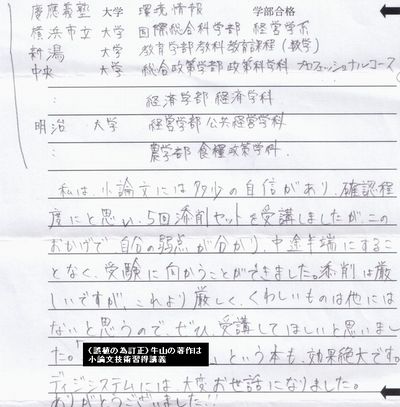 慶應義塾 大学 環境情報 学部合格
横浜市立 大学 国際総合科学部 経営学系
新潟 大学 教育学部教科教育課程(数学)
中央 大学 総合政策学部政策科学科 プロフェッショナルコース
経済学部 経済学科
明治 大学 経営学部 公共経営学科
農学部 食糧政策学科.
私は、小論文には多少の自信があり、確認程
度にと思い、5回添削セットを受講しましたが、この
おかげで自分の弱点が分かり、中途半端にするこ
となく、受験に向かうことができました。添削は厳
しいですが、これより厳しく、くわしいものは他には
ないと思うので、ぜひ、受講してほしいと思いまし
た。 《誤植の為訂正》牛山の著作は 、という本も、効果絶大です。
小論文技術習得講義
ディジシステムには、大変お世話になりました。
ありがとうございました!!